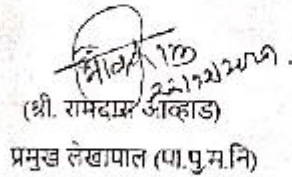 (श्री. रामदास आव्हाड)
प्रमुख लेखापाल (पा.पु.म.नि)